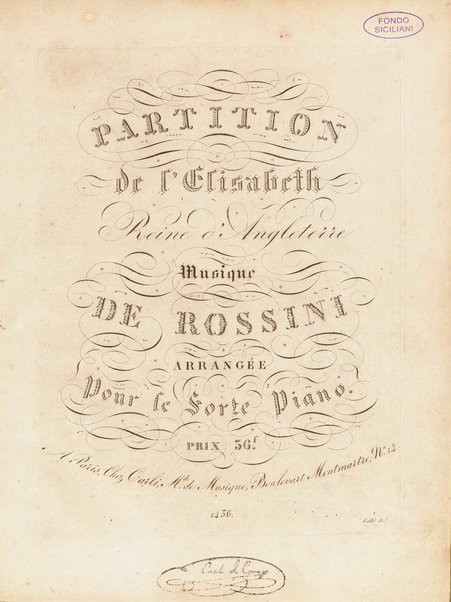 FONDO
SICILIANI
PARTITION
de l'Elisabeth
Reine d'Angleterre
Musique
DE ROSSINI
ARRANGÉE
Pour le Forte Piano.
PRIX 36.f
A Paris, Chez Carli, Md. de Musique, Boulevart Montmartre, No. 14.
1436.